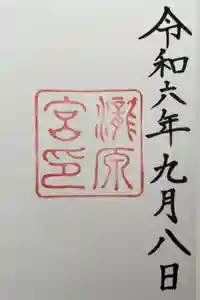 令和六年九月八日
瀧原
宮印